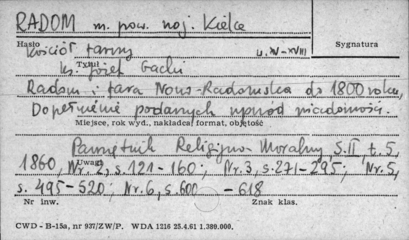 RADOM m. pow. woj. Kielce
Hasło
Kościół farny w. XV-XVIII Sygnatura
Tytuł
ks. Józef Gacki
Radom i fara Nowo-Radomska do 1800 roku,
Dopełnienie podanych wprzód wiadomości.
Miejsce, rok wyd., nakładca, format, objętość
Pamiętnik Religijno-Moralny, S.II t. 5,
Uwagi
1860, Nr. 2, s. 121-160; Nr. 3, s. 271-295; Nr. 5,
s. 495-520; Nr. 6, s. 600 - 618
Nr inw. Znak klas.
CWD - B-15a, nr 937/ZW/P. WDA 1216 25.4.61 1.380.000.